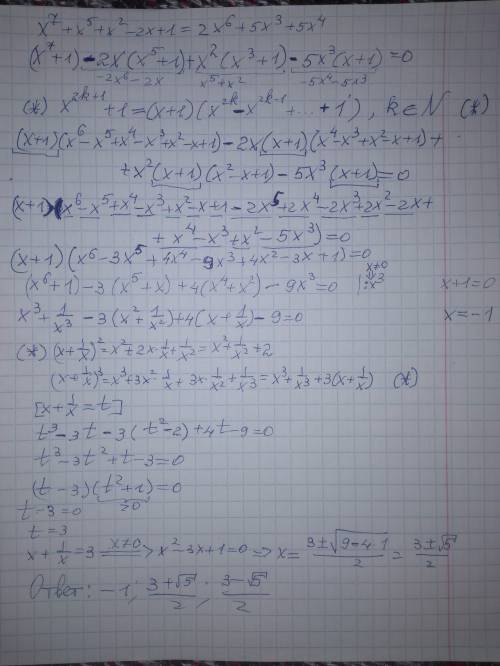 x⁷+x⁵+x²-2x+1 = 2x⁶+5x³+5x⁴
(x⁷+1)-2x(x⁵+1)+x²(x³+1)-5x³(x+1)=0
-2x⁶-2x x⁵+x² -5x⁴-5x³
(*) x²ᵏ⁺¹+1=(x+1)(x²ᵏ-x²ᵏ⁻¹+...+1), k∈N (*)
(x+1)(x⁶-x⁵+x⁴-x³+x²-x+1)-2x(x+1)(x⁴-x³+x²-x+1)+
+x²(x+1)(x²-x+1)-5x³(x+1)=0
(x+1)(x⁶-x⁵+x⁴-x³+x²-x+1-2x⁵+2x⁴-2x³+2x²-2x+
+x⁴-x³+x²-5x³)=0
(x+1)(x⁶-3x⁵+4x⁴-9x³+4x²-3x+1)=0
x≠0
(x⁶+1)-3(x⁵+x)+4(x⁴+x²)-9x³=0 |:x³ x+1=0
x³+1/x³-3(x²+1/x²)+4(x+1/x)-9=0 x=-1
(*) (x+1/x)²=x²+2x·1/x+1/x²=x²+1/x²+2
(x+1/x)³=x³+3x²·1/x+3x·1/x²+1/x³=x³+1/x³+3(x+1/x) (*)
[x+1/x=t]
t³-3t-3(t²-2)+4t-9=0
t³-3t²+t-3=0
(t-3)(t²+1)=0
t-3=0 ≥0
t=3
x+1/x=3 x≠0 > x²-3x+1=0 => x=(3±√(9-4·1))/2=(3±√5)/2
Ответ: -1; (3+√5)/2; (3-√5)/2